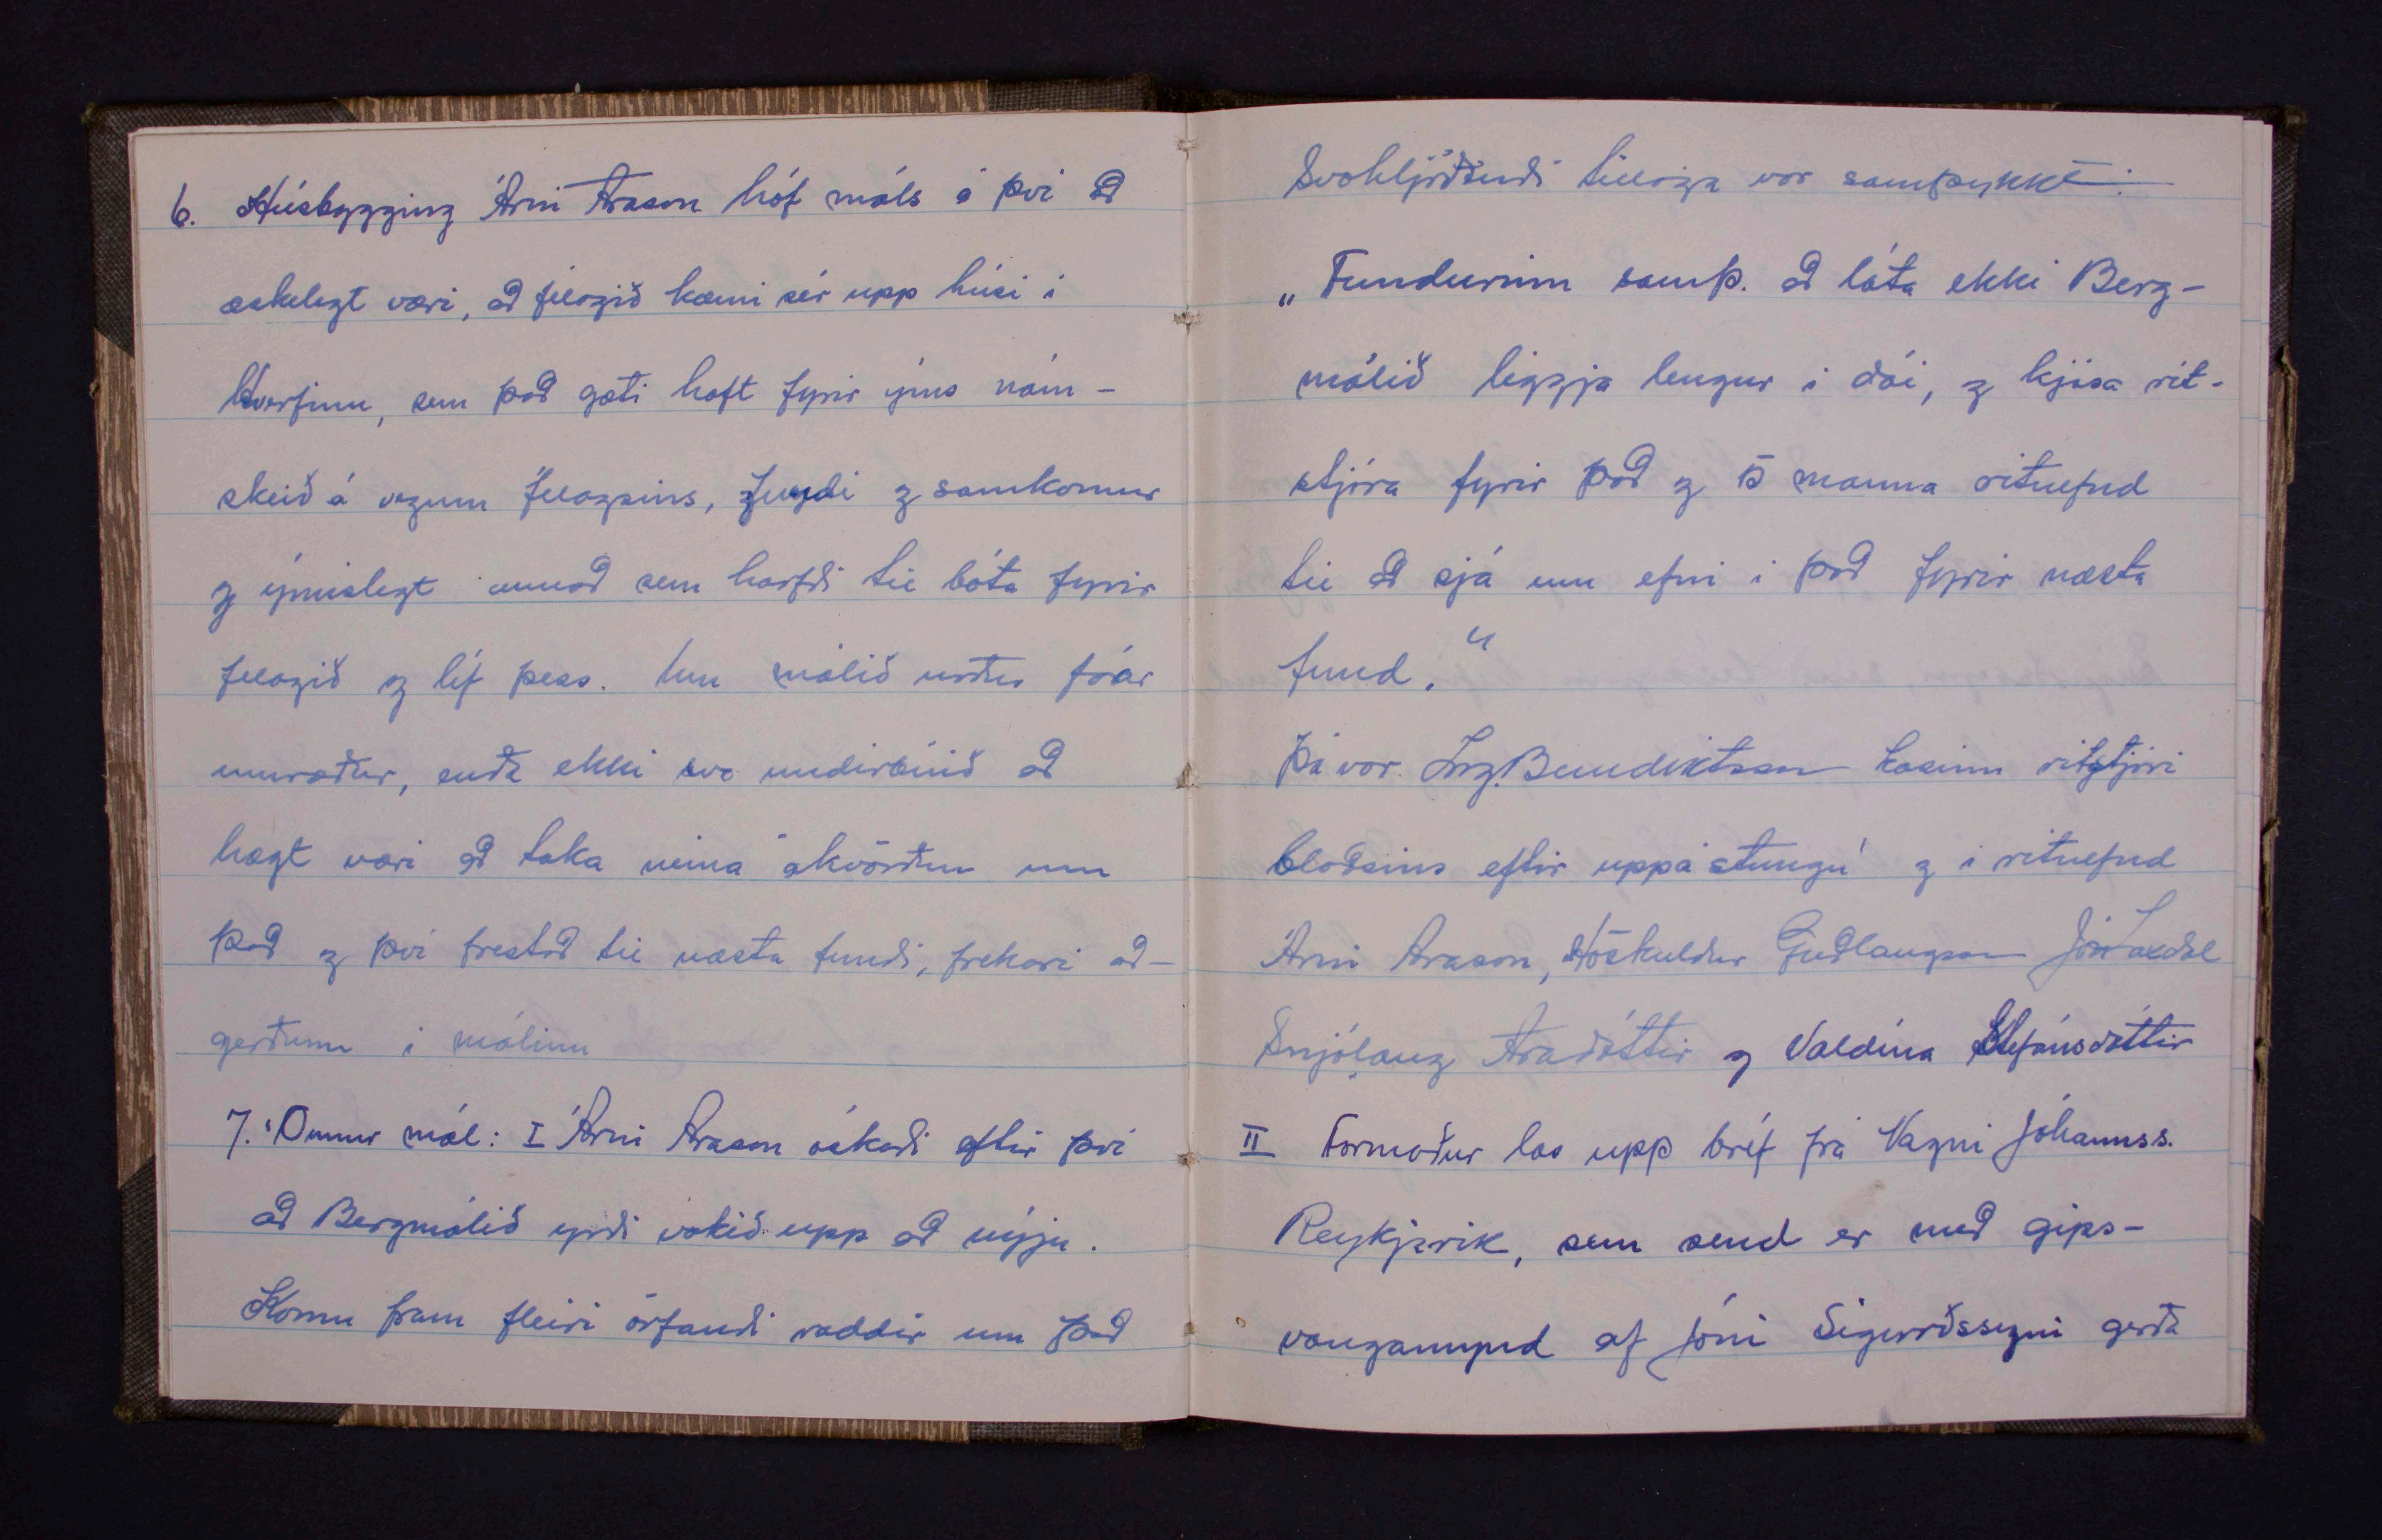 6. Húsbygging Árni Arason hóf máls á því að
æskilegt væri, að félagið kæmi sér upp húsi í
hverfinu, sem það gæti haft fyrir ýms nám-
skeið á vegum félagsins, fundi og samkomur
og ýmislegt annað sem horfði til bóta fyrir
félagið og líf þess. Um málið urðu fáar
umræður, enda ekki svo undirbúið að
hægt væri að taka neina ákvörðun um
það og því frestað til næsta fundi, frekari að-
gerðum í málinu
7. Önnur mál: I Árni Arason óskaði eftir því
að Bergmálið yrði vakið upp að nýju.
Komu fram fleiri örfandi raddir um það
Svohljóðandi tillaga var samþykkt:
„Fundurinn samþ. að láta ekki Berg-
málið liggja lengur í dái, og kjósa rit-
stjóra fyrir það og 5 manna ritnefnd
til að sjá um efni í það fyrir næsta
fund."
Þá var Ing. Benediktsson kosinn ritstjóri
blaðsins eftir uppástungu og í ritnefnd
Árni Arason, Höskuldur Guðlaugsson Jón Laxdal
Snjólaug Aradóttir og Valdína Stefánsdóttir
II Formaður las upp bréf frá Vagni Jóhannss.
Reykjavík, sem send er með gips-
vangamynd af Jóni Sigurðssyni gerða